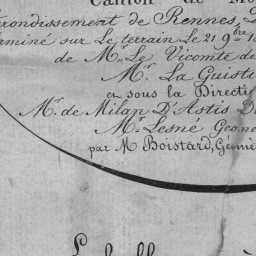 Canton de Mo
rrondissement de Rennes, D
erminé sur Le terrain Le 21 9bre 1
de Mr. Le Vicomte de
Mr. La Guist
en sous la Directi
Mr. de Milan D'Astis D
Mr. Lesné Géom
par M Boistard, Géomè